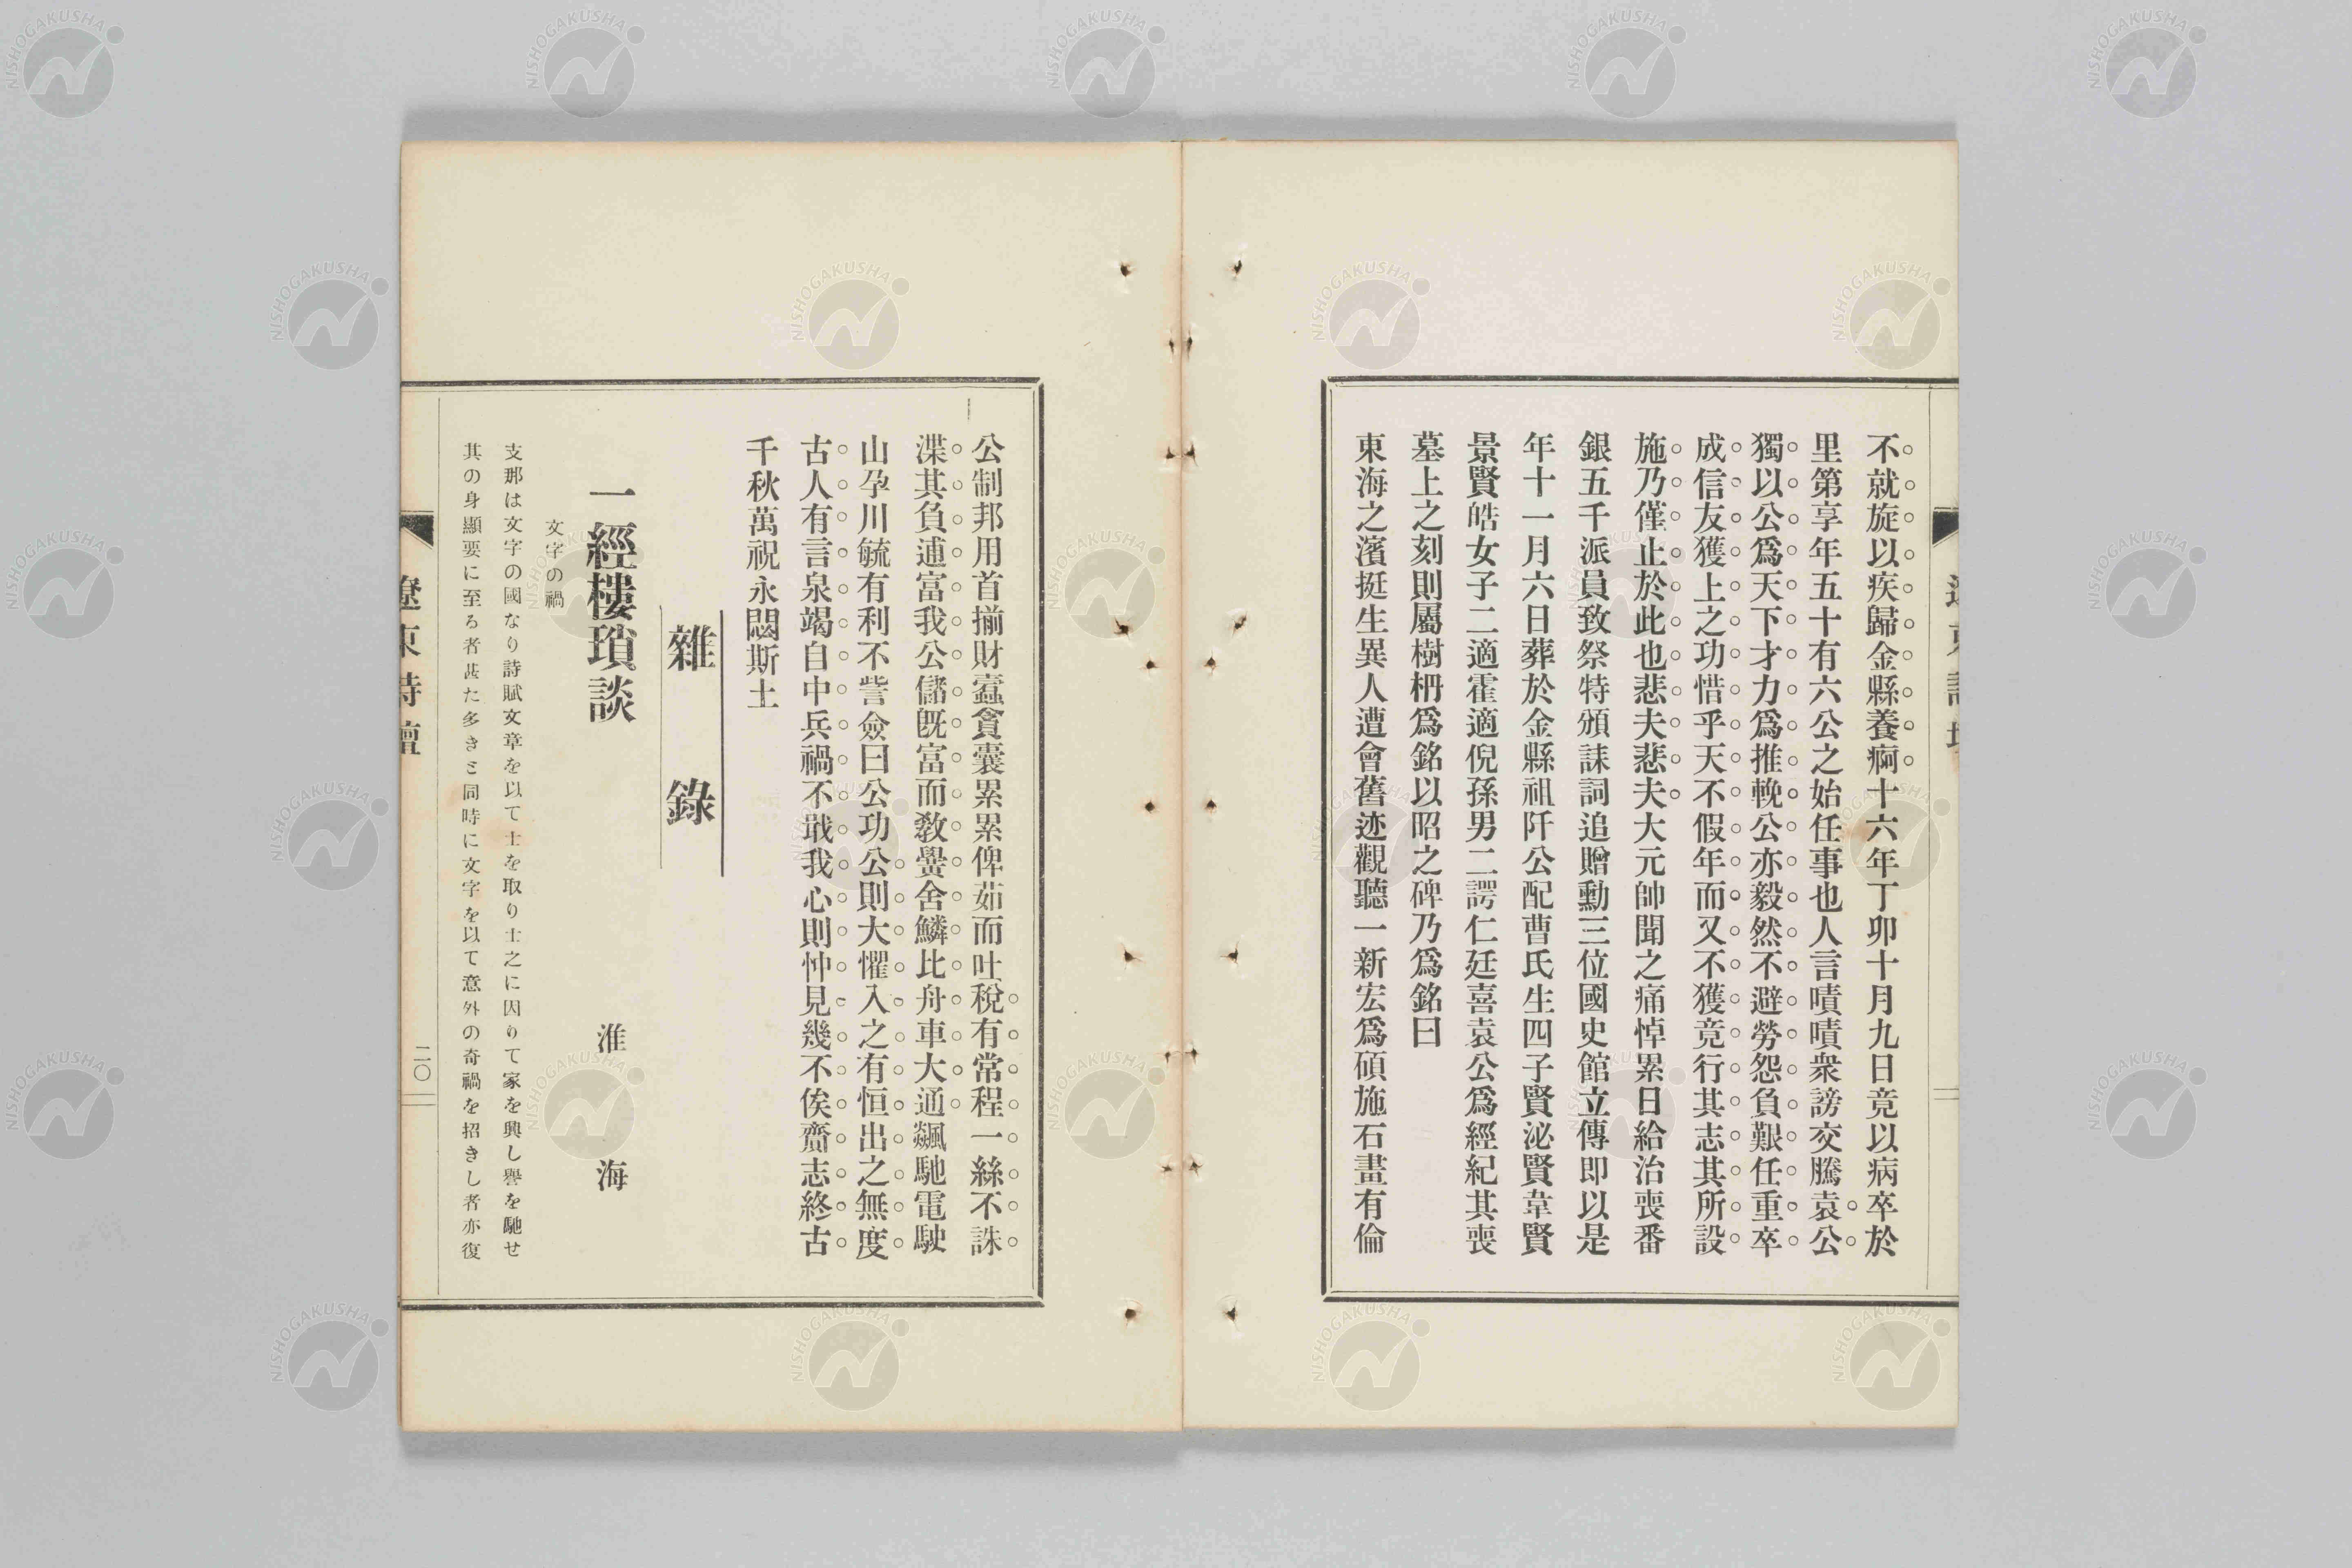 不就旋以疾歸金縣養疴十六年丁卯十月九日竟以病卒於
里第享年五十有六公之始任事也人言嘖嘖衆謗交騰袁公
獨以公爲天下才力爲推輓公亦毅然不避勞怨負艱任重卒
成信友獲上之功惜乎天不假年而又不獲竟行其志其所設
施乃僅止於此也悲夫悲夫大元帥聞之痛悼累日給治喪番
銀五千派員致祭特頒誄詞追贈勳三位國史館立傳即以是
年十一月六日葬於金縣祖阡公配曹氏生四子賢泌賢韋賢
景賢皓女子二適霍適倪孫男二諤仁廷喜袁公爲經紀其喪
墓上之刻則屬樹枏爲銘以昭之碑乃爲銘曰
東海之濱挺生異人遭會舊迹觀聽一新宏爲碩施石畫有倫
公制邦用首揃財蠹貪囊累累俾茹而吐稅有常程一絲不誅
渫其負逋富我公儲旣富而敎黌舍鱗比舟車大通飆馳電駛
山孕川毓有利不訾僉曰公功公則大懼入之有恒出之無度
古人有言泉竭自中兵禍不戢我心則忡見幾不俟齎志終古
千秋萬祝永閟斯土
雜錄
一經樓瑣談
淮海
文字の禍
支那は文字の國なり詩賦文章を以て士を取り士之に因りて家を興し譽を馳せ
其の身顯要に至る者甚た多きと同時に文字を以て意外の奇禍を招きし者亦復
遼東詩壇
二〇
NISHOGAKUSHA